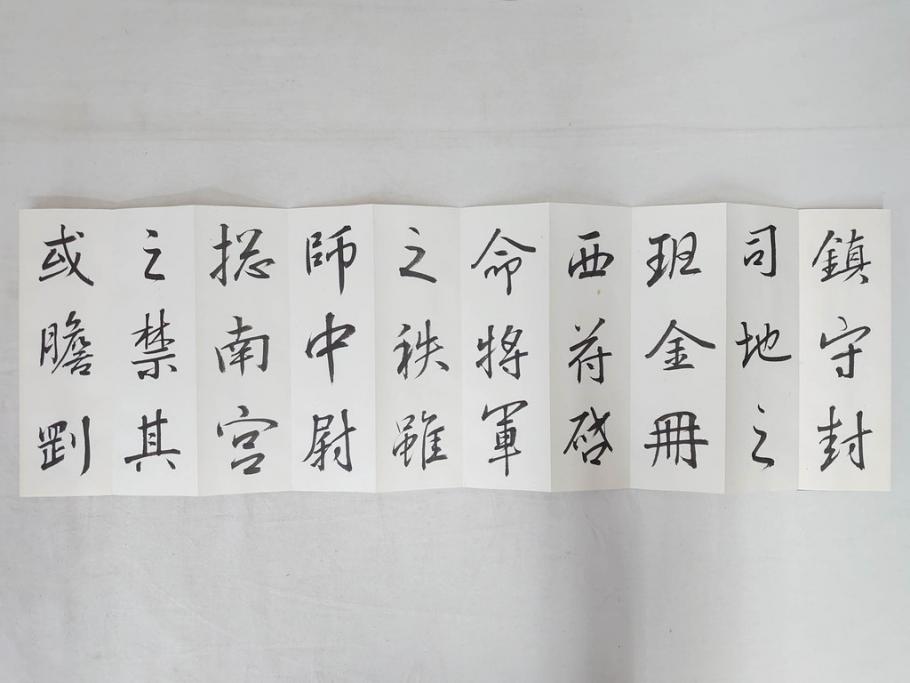 鎮守封
司地之
班金冊
西符啓
命将軍
之秩雖
師中尉
揔南宮
之禁其
或瞻劉